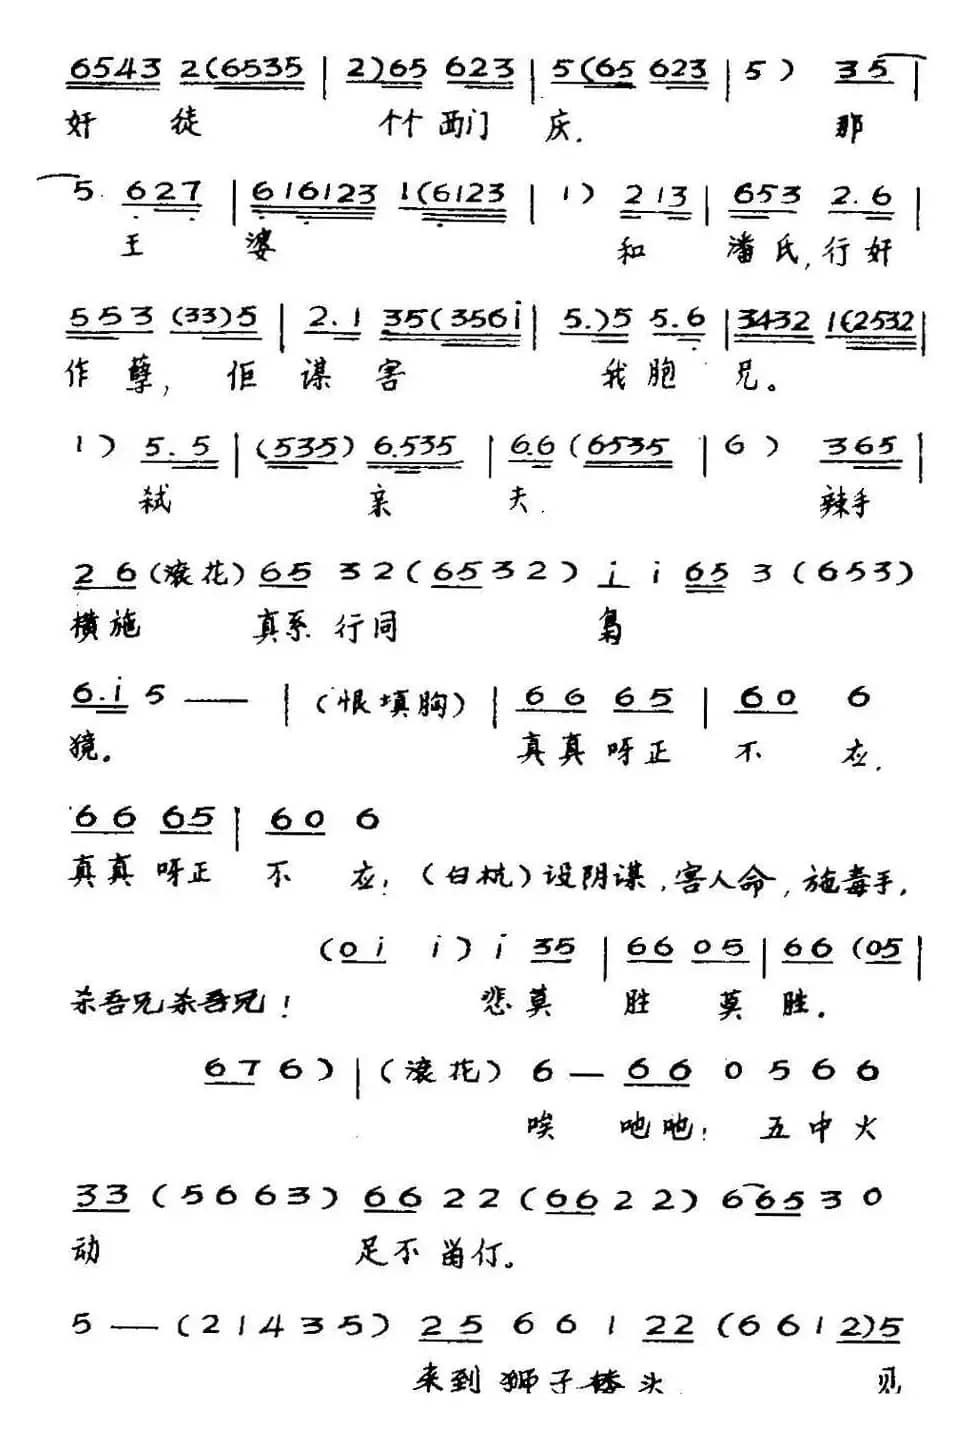 6543 2(6535 | 2)65 623 | 5(65 623 | 5 ) 35 |
奸 徒 个个 西门 庆. 那
5. 627 | 616123 1(6123 | 1) 213 | 653 2.6 |
王 婆 和 潘 氏, 行 奸
553 (33)5 | 2.1 35(356i | 5.)5 5.6 | 3432 1(2532 |
作 孽, 佢 谋 害 我 胞 兄。
1 ) 5.5 | (535) 6.535 | 6.6 (6535 | 6 ) 365 |
弑 亲 夫. 辣手
2 6 (滚花) 65 32 (6532) i i 65 3 (653)
横施 真系 行同 枭
6.i 5 — | (恨填胸) | 66 65 | 60 6
獍。 真真 呀正 不 应.
66 65 | 60 6
真真 呀正 不 应! (白杬) 设阴谋, 害人命, 施毒手,
(0i i) i 35 | 66 05 | 66 (05 |
杀吾兄杀吾兄! 悲莫 胜 莫 胜.
67 6) | (滚花) 6 — 66 0 5 6 6
唉 吔吔! 五中火
33 (5663) 66 22 (6622) 6 65 3 0
动 足不 留 仃。
5 — (21435) 25 661 22 (6612)5
来到 狮子桥头 见